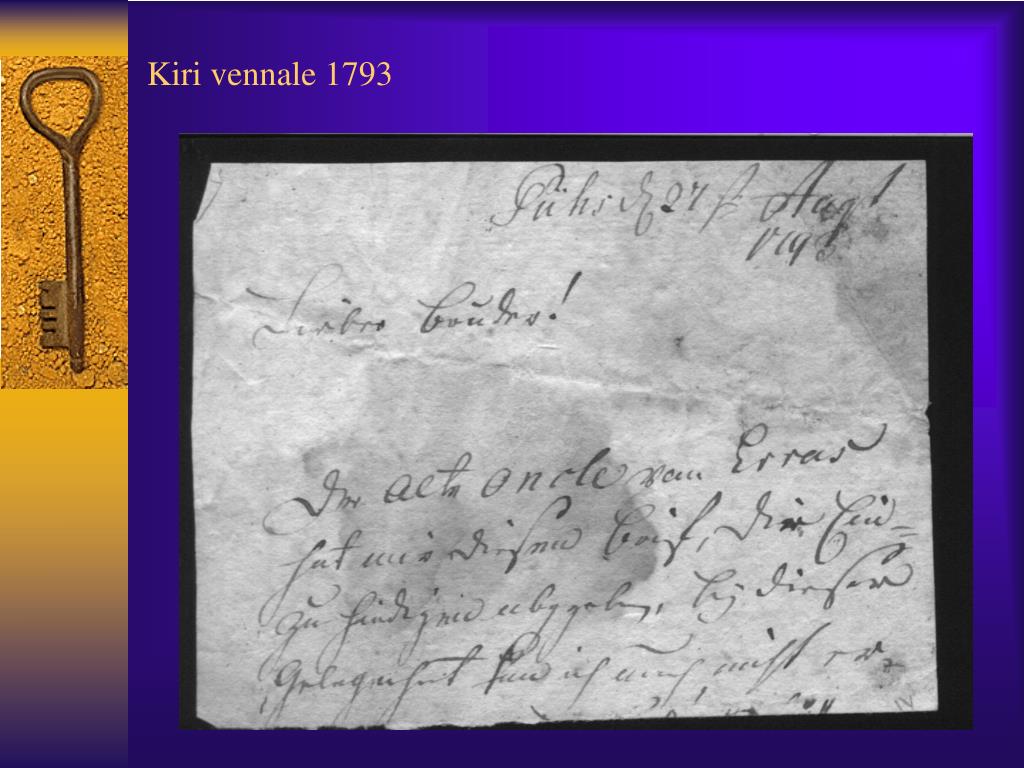 Kiri vennale 1793
Pühs d 27 Augt
1793
Lieber Bruder!
Der alte oncle von Erras
hat mir diesen Brief, Dir Ein-
zu händigen abgegeben, bey dieser
Gelegenheit kan ich mich nicht er-